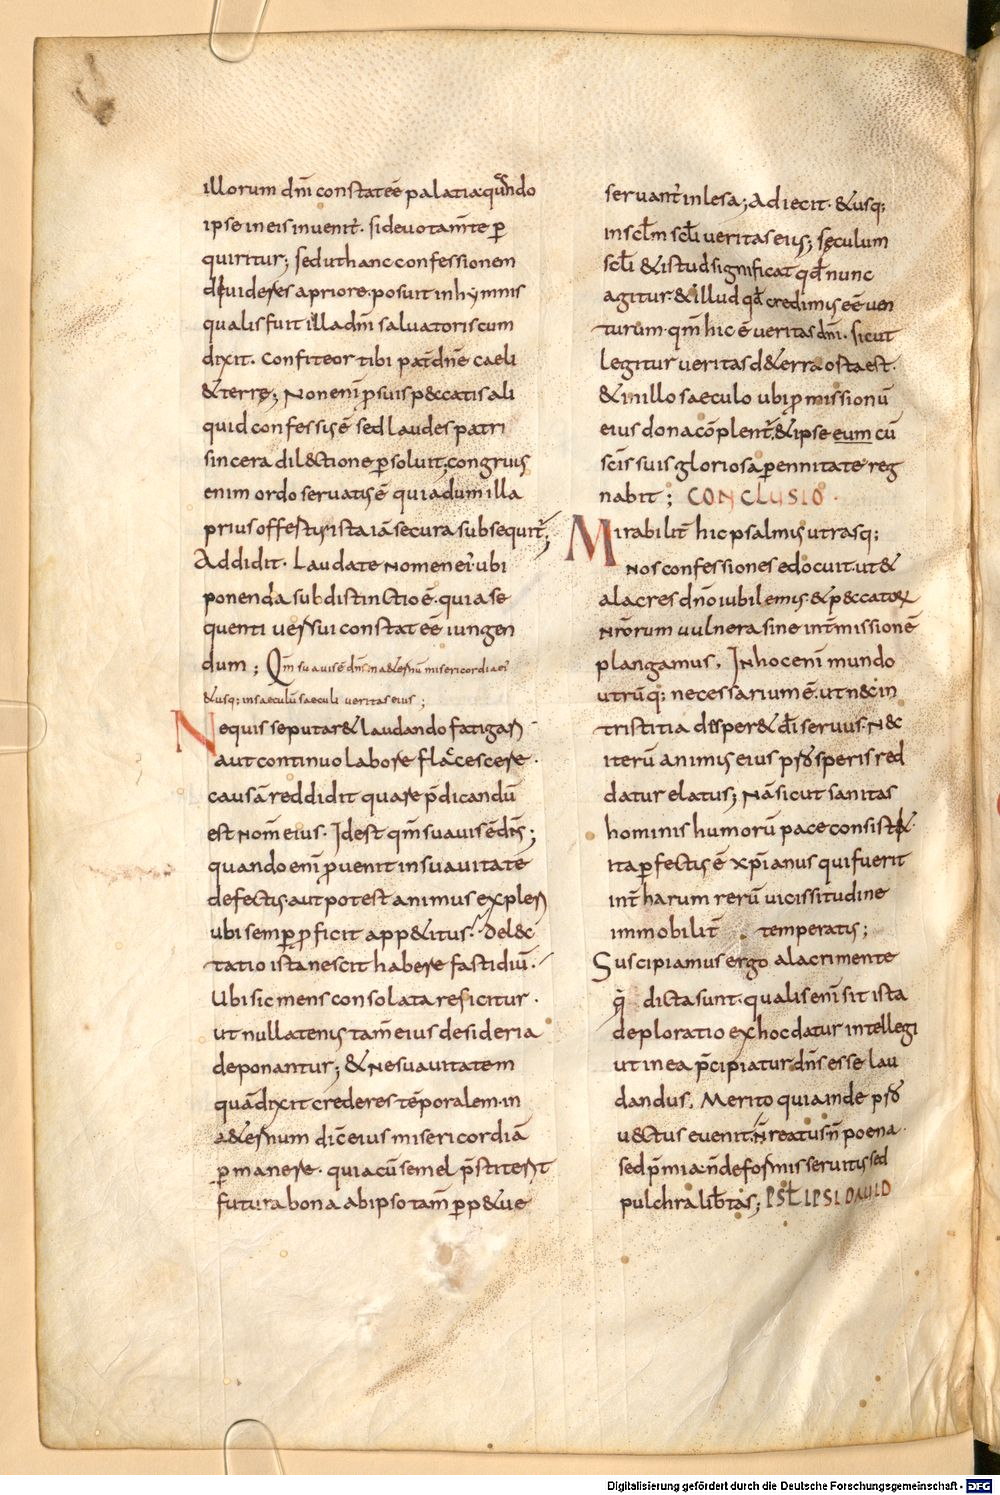 illorum dn̄i constat eē palatia· qn̄do
ipse in eis inuenit̄· si deuotam̄te ꝑ
quiritur; sed ut hanc confessionem
diuideres a priore· posuit in hymnis
qualis fuit illa dn̄i saluatoris cum
dixit· Confiteor tibi pat̄ dn̄e caeli
& terrę; Non enī ꝓ suis peccatis ali
quid confessus ē sed laudes patri
sincera dilectione ꝑsoluit; congruus
enim ordo seruatus ē quia dum illa
prius offertur ista iā secura subsequit̄;
Addidit· Laudate nomen ei· ubi
ponenda subdistinctio ē· quia se
quenti uersui constat eē iungen
dum; Qm̄ suauis ē dn̄s in aeternū misericordia ei
&usq; in saeculū saeculi ueritas eius;
Nequis se putar& laudando fatigari
aut continuo labore flaccescere·
causā reddidit quare p̄dicandū
est nom̄ eius· Id est qm̄ suauis ē dn̄s;
quando enī ꝓuenit in suauitate
defectus aut potest animus expleri
ubi semꝑ ꝓficit app&itus· Delec
tatio ista nescit habere fastidiū·
Ubi sic mens consolata reficitur·
ut nullatenus tam̄ eius desideria
deponantur; & ne suauitatem
quā dixit crederes tēporalem· in
aeternum dic̄ eius misericordiā
ꝑmanere· quia cū semel p̄stiterit
futura bona ab ipso tam̄ ꝑp&ue
seruant̄ inlesa; Adiecit· &usq;
in scl̄m scl̄i ueritas eius; sęculum
scl̄i & istud significat qđ nunc
agitur· & illud qđ credimus eē uen
turum· qm̄ hic ē ueritas dn̄i· sicut
legitur ueritas de terra orta est·
& in illo saeculo ubi ꝓmissionū
eius dona cōplent̄· & ipse eum cū
scīs suis gloriosa ꝑennitate reg
nabit; CONCLUSIO·
Mirabilit̄ hic psalmus utrasq;
nos confessiones edocuit· ut &
alacres dn̄o iubilemus· & peccatoꝝ
nrōrum uulnera sine int̄missionē
plangamus. In hoc enī mundo
utrūq; necessarium ē· ut nec in
tristitia desper& dī seruus· Nec
iterū animus eius prosperis red
datur elatus; Nā sicut sanitas
hominis humorū pace consistit·
ita ꝑfectus ē xp̄ianus qui fuerit
int̄ harum rerū uicissitudine
immobilit̄ temperatus;
Suscipiamus ergo alacri mente
q̄ dicta sunt· qualis enī sit ista
deploratio ex hoc datur intellegi
ut in ea p̄cipiatur dn̄s esse lau
dandus. Merito quia inde pro
uectus euenit· N̄ reatus· n̄ poena·
sed p̄mia· n̄ deformis seruitus sed
pulchra lib̄tas; PSL̄ IPSI DAUID
Digitalisierung gefördert durch die Deutsche Forschungsgemeinschaft - DFG